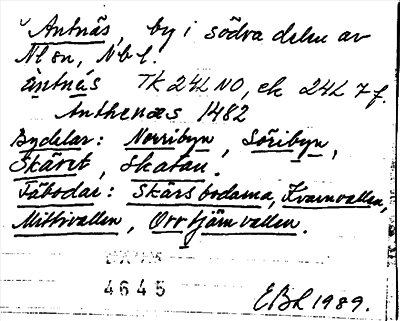 Antnäs, by i södra delen av
Nl sn, Nbl.
àntnás TK 24L NO, ek 24L 7 f.
Anthenæs 1482
Bydelar: Norribyn, Söribyn,
Skäret, Skatan.
Fäbodar: Skärsbodarna, Kvarnvallen,
Mittivallen, Orrtjärnvallen.
4645
EBk 1989.